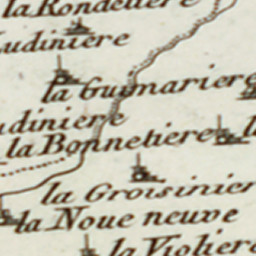 la Rondeliere
udiniere
la Guimariere
udiniere
la Bonnetiere
la Groisinier
la Noue neuve
la Violiere